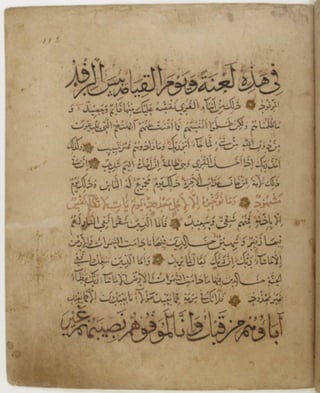 في هذه لعنة ويوم القيامة بئس الرفد
المرفود ذلك من أنباء القرى نقصه عليك منها قائم وحصيد و
ما ظلمناهم ولكن ظلموا أنفسهم فما أغنت عنهم آلهتهم التي يدعون
من دون الله من شيء لما جاء أمر ربك وما زادوهم غير تتبيب وكذلك
أخذ ربك إذا أخذ القرى وهي ظالمة إن أخذه أليم شديد إن في
ذلك لآية لمن خاف عذاب الآخرة ذلك يوم مجموع له الناس وذلك يوم
مشهود وما نؤخره إلا لأجل معدود يوم يأت لا تكلم نفس
إلا بإذنه فمنهم شقي وسعيد فأما الذين شقوا ففي النار لهم
فيها زفير وشهيق خالدين فيها ما دامت السموات والأرض
إلا ما شاء ربك إن ربك فعال لما يريد وأما الذين سعدوا ففي
الجنة خالدين فيها ما دامت السموات والأرض إلا ما شاء ربك عطاء
غير مجذوذ فلا تك في مرية مما يعبد هؤلاء ما يعبدون إلا كما يعبد
آباؤهم من قبل وإنا لموفوهم نصيبهم غير